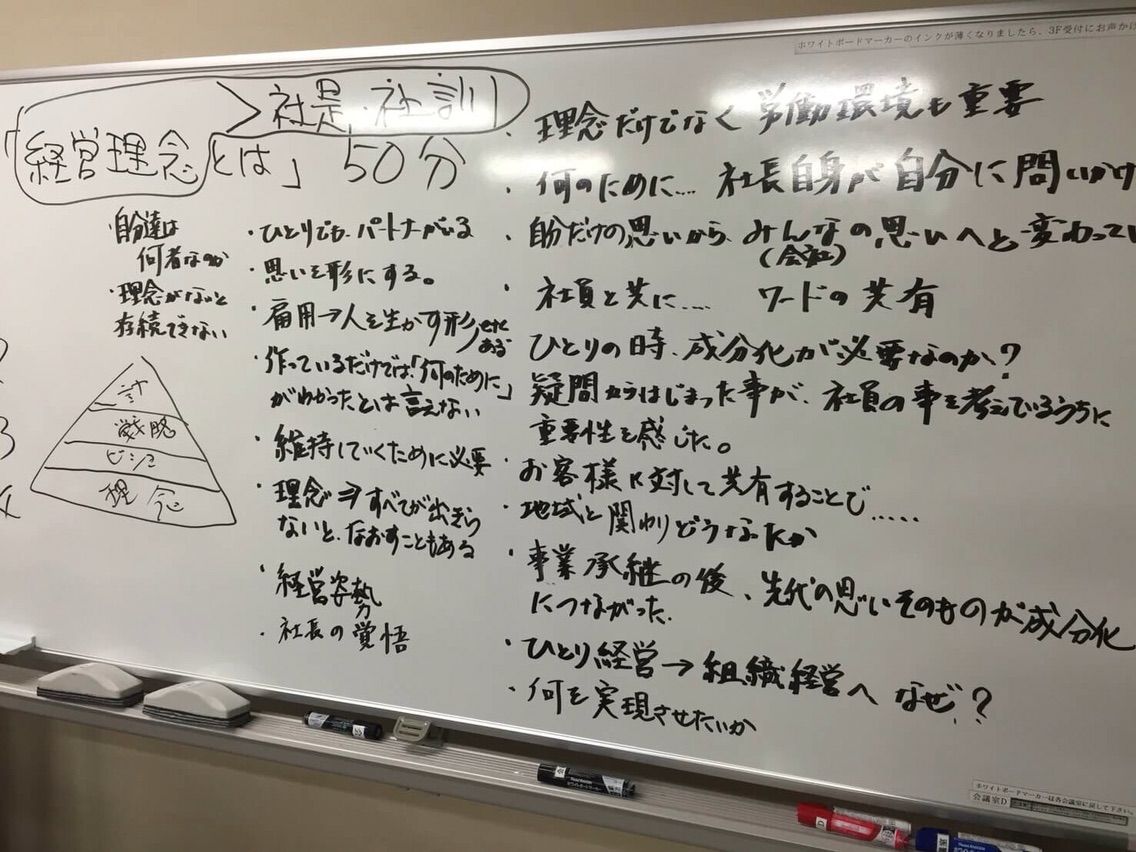 ホワイトボードマーカーのインクが薄くなりましたら、3F受付にお声かけ
>社是、社訓
「経営理念とは」 50分
・自分達は
何者なのか
・理念がないと
存続できない
計
戦略
ビジョ
理念
・ひとりでも、パートナーがいる
・思いを形にする。
・雇用→人を生かす形
・作っているだけでは「何のために」
がわかったとは言えない
・維持していくために必要
・理念⇒すべてが出きら
ないと、なおすこともある
・経営姿勢
・社長の覚悟
・理念だけでなく労働環境も重要
・何のために…. 社長自身が自分に問いかけ
・自分だけの思いから、みんなの思いへと変わってい
(会社)
・社員と共に…. ワードの共有
ひとりの時、成分化が必要なのか?
疑問からはじまった事が、社員の事を考えているうちに
重要性を感じた。
・お客様に対して共有することで.....
・地域と関わりどう
・事業承継の後、先代の思いそのものが成分化
につながった.
・ひとり経営→組織経営へ なぜ?
・何を実現させたいか
ホワイトボードマーカーは各会議室に戻して下さい。
会議室D